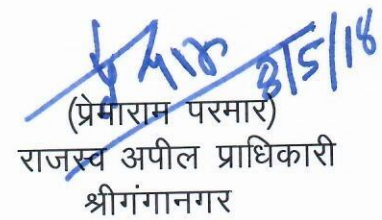 8/5/18
(प्रेमाराम परमार)
राजस्व अपील प्राधिकारी
श्रीगंगानगर